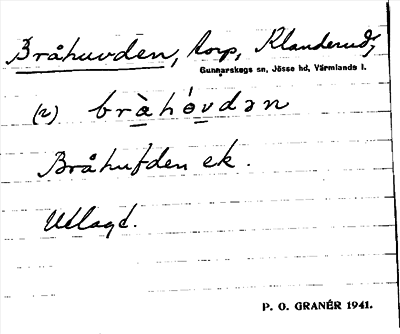 Bråhuvden, torp, Klanderud,
Gunnarskogs sn, Jösse hd, Värmlands l.
(2) bràhóvdən
Bråhufden ek.
Utlagd.
P. O. GRANÉR 1941.